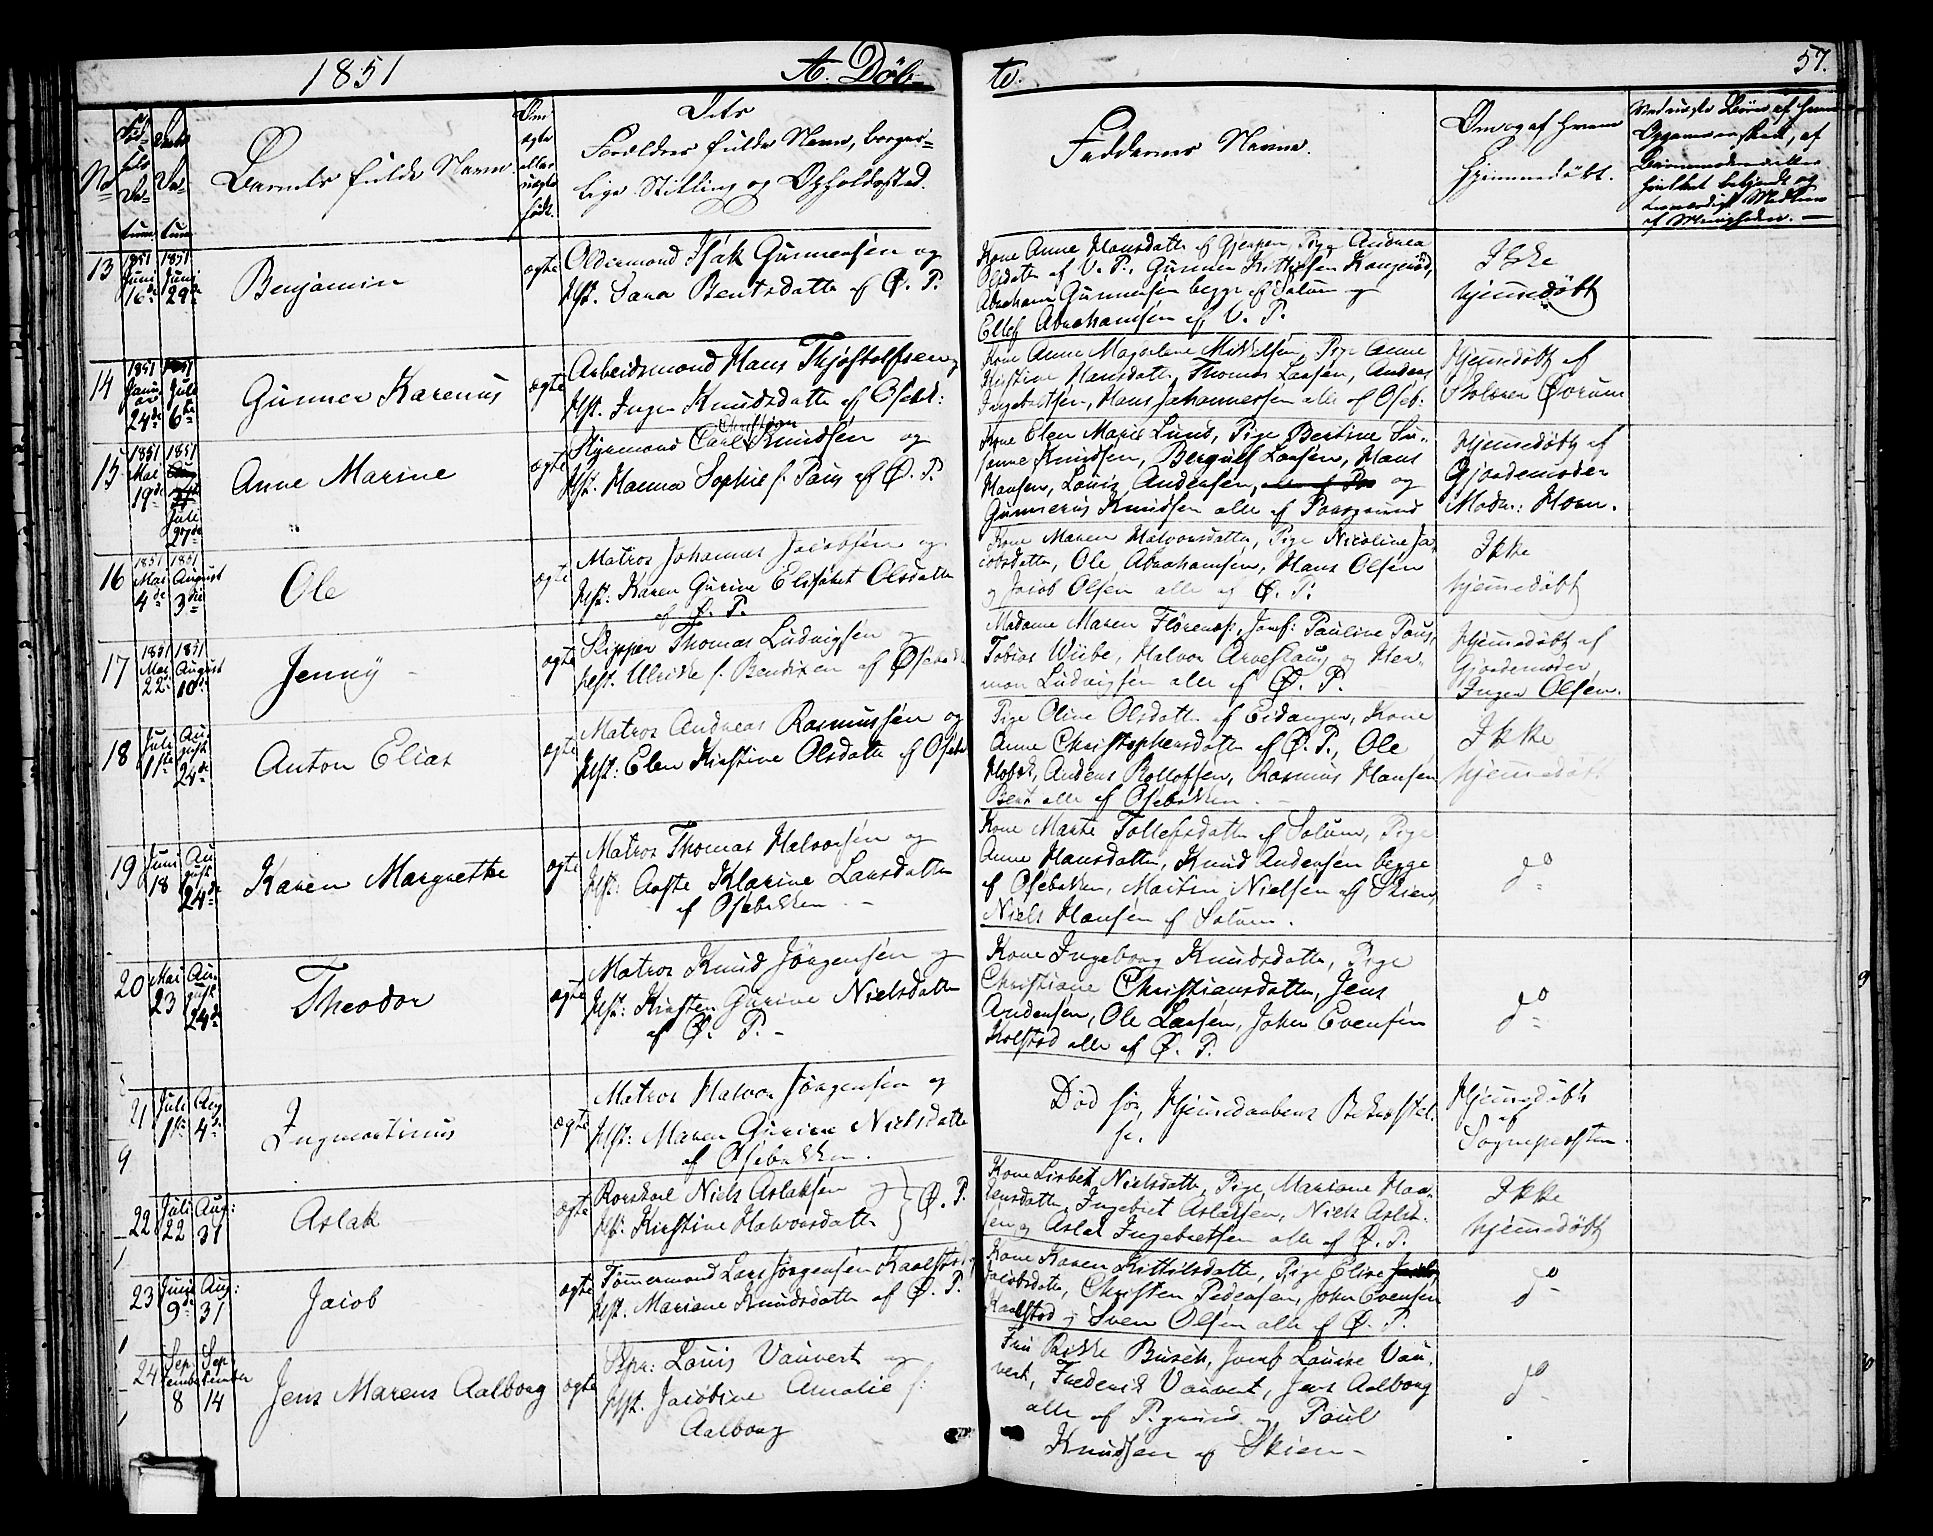 1851
A. Døb-
te.
57.
No
Fødsels Datum
Daabs Datum
Barnets fulde Navn.
Om ægte eller uægte født.
Dets
Forældres fulde Navn, borger-
lige Stilling og Opholdssted.
Faddernes Navne.
Om og af hvem
hjemmedøbt.
13
1851 Juni 16de
1851 Juni 29de
Benjamin
ægte
Oldermand Isak Gunnersen og
Hst. Sara Bentsdatter af Ø. P.
Kone Anne Hansdatter af Gjerpen, Pige Andrea
Olsdatter af V. P., Gunner Kittilsen Kongerød,
Abraham Gunnersen begge af Solum og
Ellef Abrahamsen af V. P.
Ikke
hjemmedøbt
14
1851 Januar 24de
1851 Juli 6te
Gunner Karenus
ægte
Arbeidsmand Hans Thjostolfsen og
Hst. Inger Knudsdatter af Osebk:
Kone Anne Magdelene Mikkelsen, Pige Anne
Kirstine Hansdatter, Thomas Larsen, Anders
Ingebretsen, Hans Johannessen alle af Oseb:
Hjemmedøbt af
Skolærer Øvrum
15
1851 Mai 19de
1851 Juli 27de
Anne Marine
ægte
Christian
Styrmand Carl Knudsen og
Hst. Hanna Sophie f. Paus af Ø. P.
Kone Elen Marie Lund, Pige Bertine Su-
sanne Knudsen, Bergulf Larsen, Hans
Hansen, Louis Andersen, og
Gunnerius Knudsen alle af Porsgrund
Hjemmedøbt af
Gjordemoder
Madm: Horn.
16
1851 Mai 4de
1851 August 3die
Ole
ægte
Matros Johannes Jacobsen og
Hst: Karen Gurine Elisabet Olsdatter
af Ø. P.
Kone Maren Halvorsdatter, Pige Nicoline Ja-
cobsdatter, Ole Abrahamsen, Hans Olsen
og Jacob Olsen alle af Ø. P.
Ikke
hjemmedøbt
17
1851 Mai 22
1851 August 10de
Jenny
ægte
Skipper Thomas Ludvigsen og
Hst. Ulrikke f. Bendixen af Osebak
Madame Maren Flørenes, Jomf: Pauline Paus,
Tobias Wiibe, Halvor Arveslaus og Her-
man Ludvigsen alle af Ø. P.
Hjemmedøbt af
Gjordemoder
Inger Olsen.
18
Juli 11te
August 24de
Anton Elias
ægte
Matros Andreas Rasmussen og
Hst: Elen Kirstine Olsdatter af Osebk
Pige Oline Olsdatter af Eidanger, Kone
Anne Christophersdatter af Ø. P., Ole
Hobæk, Anders Rolloffsen, Rasmus Hansen
Bert alle af Osebakken.
Ikke
hjemmedøbt
19
Juni 18
August 24de
Karen Margrethe
ægte
Matros Thomas Halvorsen og
Hst: Aaste Klarine Larsdatter
af Osebakken
Kone Marte Tollefsdatter af Solum, Pige
Anne Hansdatter, Knud Andersen begge
af Osebakken, Martin Nielsen af Skien,
Niels Hansen af Solum.
do
20
Mai 23
August 24de
Theodor
ægte
Matros Knud Jörgensen og
Hst: Kirsten Gurine Nielsdatter
af Ø. P.
Kone Ingeborg Knudsdatter, Pige
Christiane Christiansdatter, Jens
Andersen, Ole Larsen, John Evensen
Kolstad alle af Ø. P.
do
21
Juli 1ste
Aug 4de
Ingmartinus
ægte
Matros Halvor Jörgensen og
Hst: Maren Gurine Nielsdatter
af Osebakken.
Død før Hjemmdaabens Bekræftel-
se.
Hjemmedøbt
af
Sognepresten.
22
Juli 22
Aug: 31
Aslak
ægte
Rorskarl Niels Aslaksen og
Hst: Kirstine Halvorsdatter
Ø. P.
Kone Lisbet Nielsdatter, Pige Mariane Han-
sensdatter, Ingebret Aslaksen, Niels Aslak-
sen og Aslak Ingebretsen alle af Ø. P.
Ikke
hjemmedøbt
23
Juni 9de
Aug: 31
Jacob
ægte
Tømmermand Lars Jörgensen Kaalstad og
Hst. Mariane Knudsdatter af Ø. P.
Kone Karen Kittilsdatter, Pige Elise
Jacobsdatter, Christen Pedersen, John Evensen
Kaalstad og Sven Olsen alle af Ø. P.
do
24
September 8
September 14
Jens Marens Aalborg
ægte
Skpr: Louis Vauvert og
Hst. Jacobine Amalie f:
Aalborg
Fru Rikke Busch, Jomf Louise Vau-
vert, Frederik Vauvert, Jens Aalborg
alle af P.grund og Poul
Knudsen af Skien
do